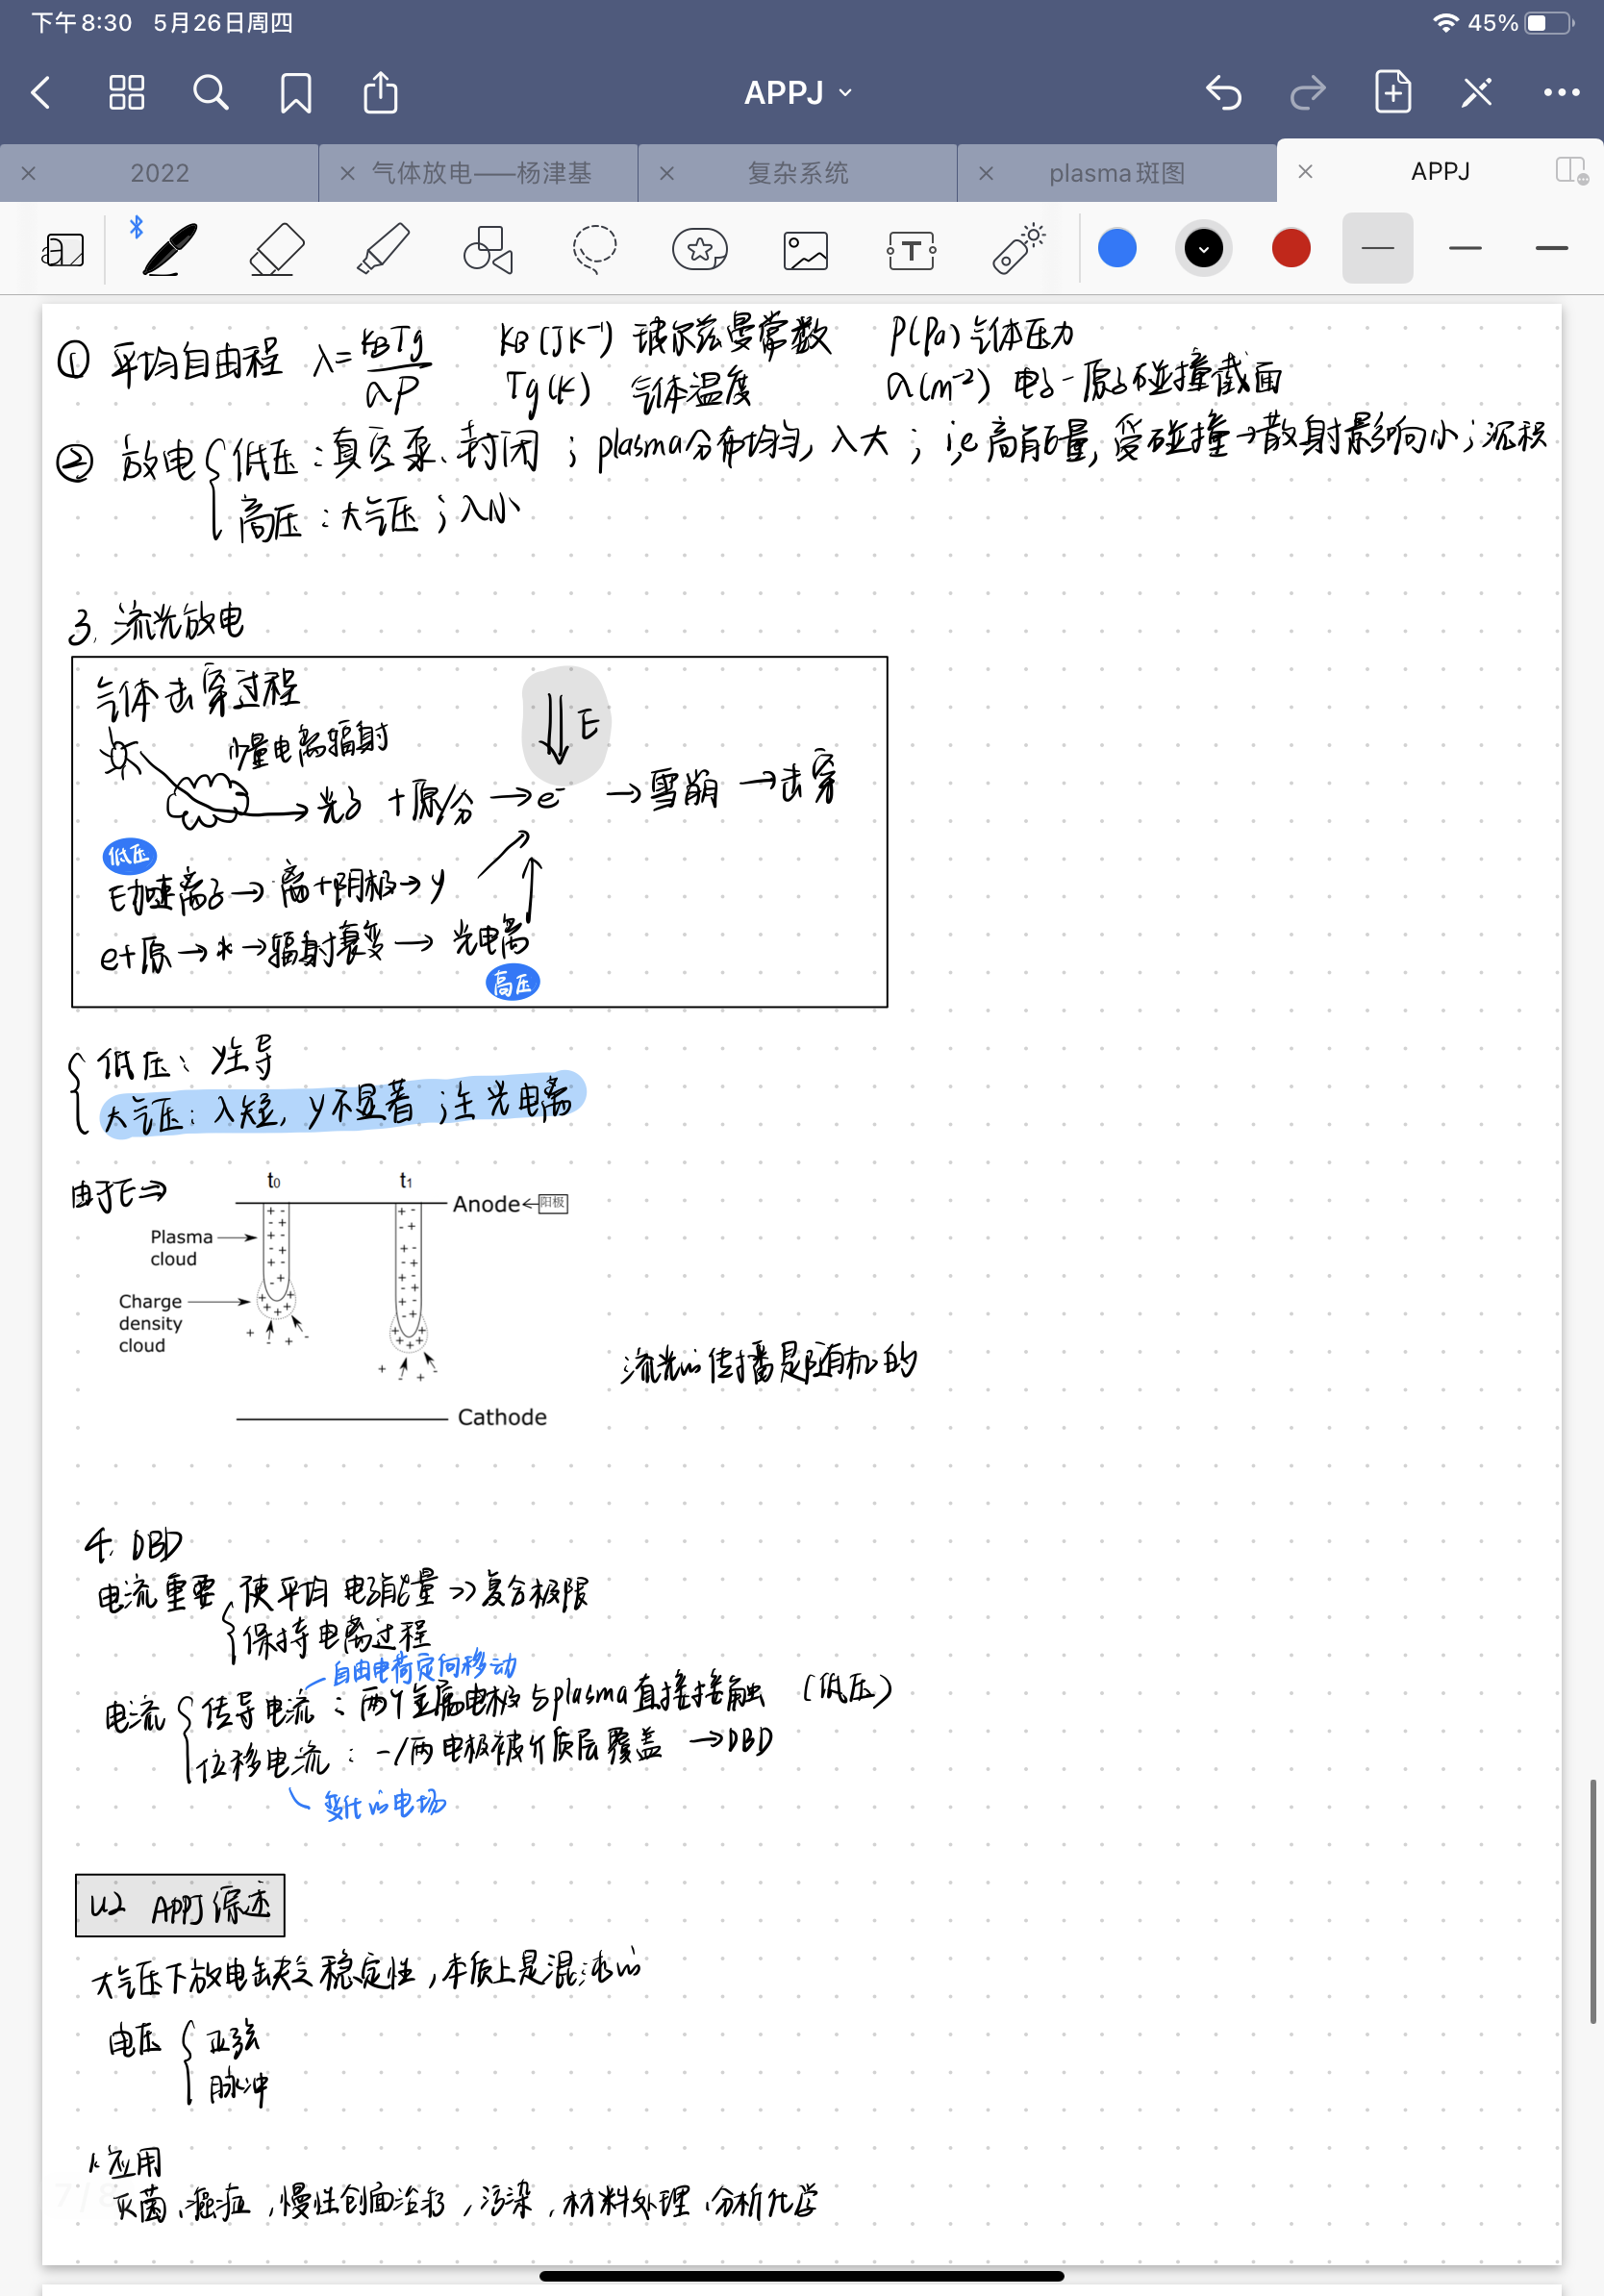 下午8:30 5月26日周四 45%
APPJ
2022 气体放电——杨津基 复杂系统 plasma斑图 APPJ
① 平均自由程 λ=kBTg/aP kB(JK⁻¹) 玻尔兹曼常数 P(Pa)气体压力
Tg(K) 气体温度 a(m⁻²) 电子-原子碰撞截面
② 放电 低压:真空泵、封闭;plasma分布均匀,λ大;i,e高能量,受碰撞→散射影响小;沉积
高压:大气压;λ小
3. 流光放电
气体击穿过程
少量电离辐射 E
光子 +原/分 →e⁻ →雪崩 →击穿
低压
E加速离子→离+阴极→γ
e+原→*→辐射衰变→ 光电离
高压
低压:γ主导
大气压:λ短,γ不显著;主光电离
由于E⇒
t0 t1
Anode←阳极
Plasma
cloud
Charge
density
cloud
流光的传播是随机的
Cathode
4. DBD
电流重要 使平均电子能量>>复合极限
保持电离过程
自由电荷定向移动
电流 传导电流:两个金属电极与plasma直接接触 (低压)
位移电流:一/两电极被介质层覆盖 →DBD
变化的电场
U2 APPJ综述
大气压下放电缺乏稳定性,本质上是混沌的
电压 正弦
脉冲
1.应用
7/8
灭菌、癌症,慢性创面治疗,污染,材料处理、分析化学